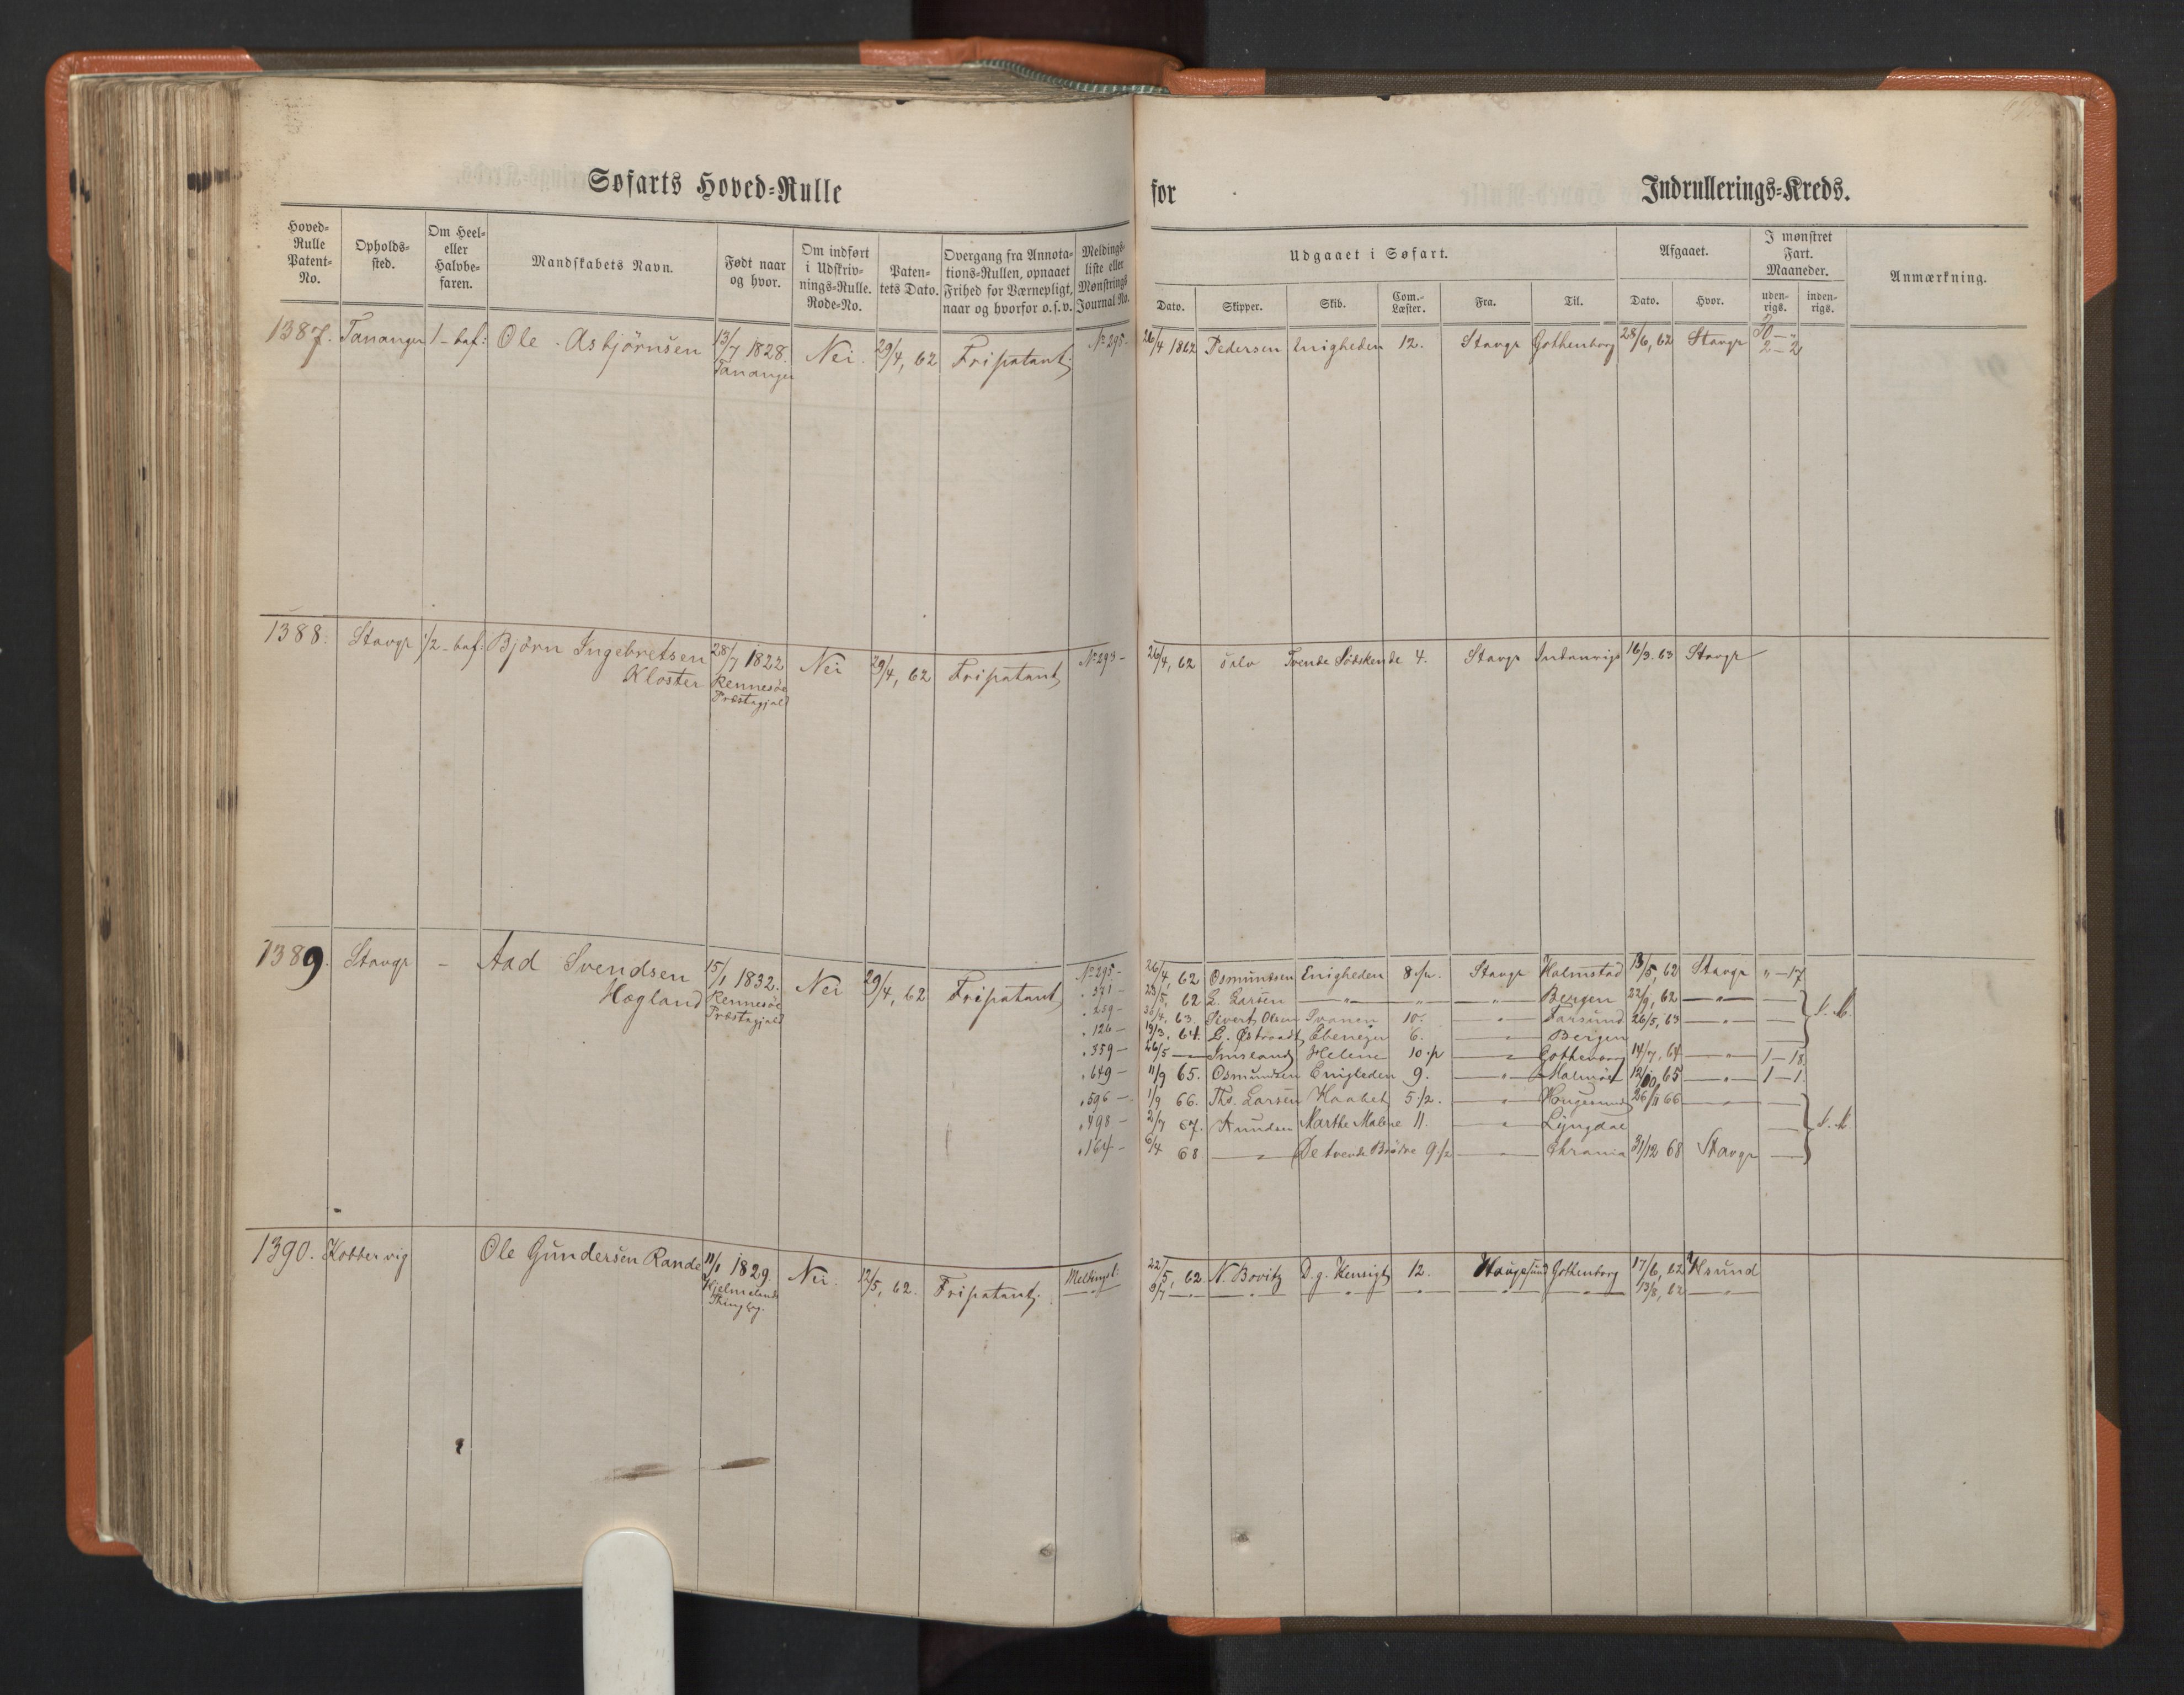 Søfarts Hoved-Rulle
for Indrullerings-Kreds.
Hoved-Rulle Patent-No.
Opholds-sted.
Om Heel- eller Halvbe-faren.
Mandskabets Navn.
Født naar og hvor.
Om indført i Udskriv-nings-Rulle. Rode-No.
Paten-tets Dato.
Overgang fra Annota-tions-Rullen, opnaaet Frihed for Værnepligt, naar og hvorfor o.s.v.
Meldings-liste eller Mønstrings Journal No.
Udgaaet i Søfart.
Dato. Skipper. Skib. Com.-Læster. Fra. Til.
Afgaaet.
Dato. Hvor.
I mønstret Fart. Maaneder.
uden-rigs. inden-rigs.
Anmærkning.
1387. Tananger 1-bef: Ole Asbjörnsen 13/7 1828. Nei. 29/4, 62 Fripatent. No 295- 26/4 1862 Pedersen Enigheden 12. Stavgr Gothenborg 28/6, 62 Stavgr
Tananger 2-2
1388. Stavgr 1/2-bef: Björn Ingebretsen 28/7 1822 Nei 29/4, 62 Fripatent No 293- 26/4, 62 Tvende Södskende 4. Stavgr Indenrigs 16/3. 63 Stavgr
Kloster Rennesöe
Præstegjeld
1389. Stavgr - Aad Svendsen 15/1 1832. Nei 29/4, 62 Fripatent No 295- 26/4, 62 Osmundsen Enigheden 8 1/2. Stavgr Halmstad 13/5, 62 Stavgr " - 17
Hægland Rennesöe
Præstegjeld
" 371 - 23/5, 62 L. Larsen — " — " — " — Bergen 22/9, 62 — " —
" 259 - 4, 63. Sivert Olsen Svanen 10. — " — Farsund 26/5, 63 — " —
" 126 - 19/3. 64. L. Østraadt Ebenezer 6. — " — Bergen
" 359 - 26/5 — Helene 10 1/2 — " — Gothenborg 14/7, 64 — " — 1 - 18
" 649 - 11/9 65. Osmundsen Enigheden 9. — " — Malmöe 12/10, 65 — " — 1 - 1
" 596 - 1/9 66. Ths. Larsen Haabet 5 1/2. — " — Haugesund 26/11 66 — " —
" 498 - 2/7 67. Knudsen Marthe Malene 11. — " — Lyngdal
" 164 - 6/4 68 — " — De tvende Brödre 9 1/2 — " — Chrania 31/12 68 Stavgr
1390. Kobbervig Ole Gundersen Rande 11/1 1829. Nei. 12/5, 62. Fripatent. Meldingsl. 22/5, 62. N. Bovitz D. g. Hensigt 12. Haugesund Gothenborg 17/6, 62 Hsund
Hjelmelands
Thinglag.
9/7 — " — " — " — " — " — " 13/8, 62 — " —